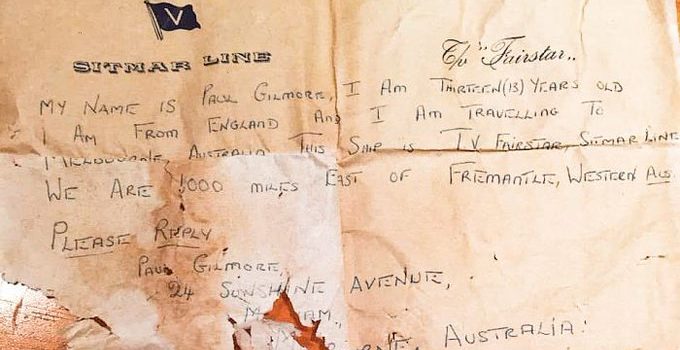 V
SITMAR LINE
The "Fairstar"
MY NAME IS PAUL GILMORE, I AM THIRTEEN (13) YEARS OLD
I AM FROM ENGLAND AND I AM TRAVELLING TO
MELBOURNE, AUSTRALIA THIS SHIP IS TV FAIRSTAR, SITMAR LINE
WE ARE 1000 MILES EAST OF FREMANTLE, WESTERN AUS.
PLEASE REPLY
PAUL GILMORE,
24 SUNSHINE AVENUE,
AUSTRALIA.